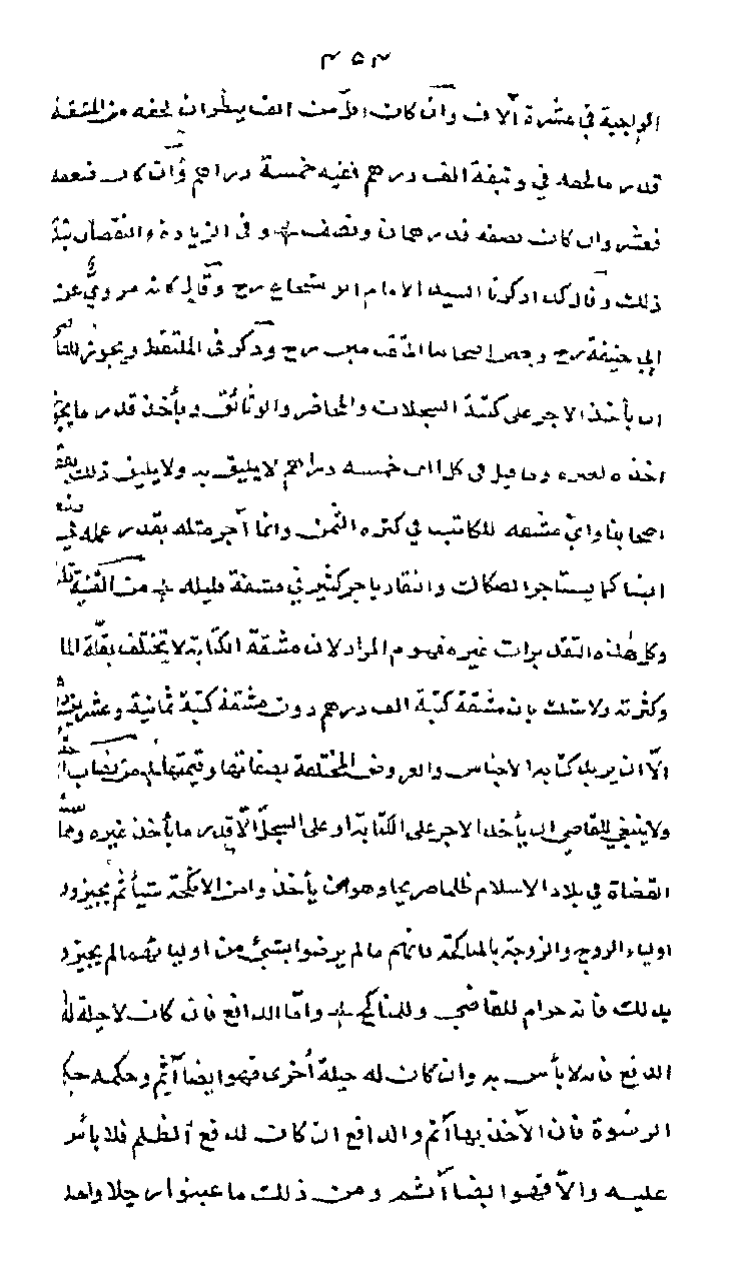 ٣٥٣
الواجبة في عشرة آلاف وان كان اقل من الف ينظر ان لحقه من المشقة
قدر ما لحقه في وثيقة الف درهم ففيه خمسة دراهم وان كان ضعفه
فعشر وان كان نصفه فدرهمان ونصف وفي الزيادة والنقصان
ذلك وقال كذا ذكرنا السيد الامام ابو شجاع رح وقال كانه مروي عن
ابي حنيفة رح وبعض اصحابنا المتقدمين رح وذكر في الملتقط ويجوز للقاضي
ان يأخذ الاجر على كتبة السجلات والمحاضر والوثائق ويأخذ قدر ما يجوز
اخذه لغيره وما قيل في كل الف خمسة دراهم لا يليق به ولا يليق ذلك بفقه
اصحابنا واي مشقة للكاتب في كثرة الثمن وانما اجر مثله بقدر عمله في
كما يستأجر الصكاك والنقاد باجر كثير في مشقة قليلة من القنية
وكل هذه التقديرات غير مفهوم المراد لان مشقة الكتابة لا تختلف بقلة المال
وكثرته ولا شك بان مشقة كتبة الف درهم دون مشقة كتبة ثمانية وعشرين
الا ان يريد كتابة الاجناس والعروض المختلفة بصفاتها وقيمتها من نصاب
ولا ينبغي للقاضي ان يأخذ الاجر على الكتابة او على السجل الا قدر ما يأخذ غيره ومما
القضاة في بلاد الاسلام ظلما صريحا وهو ان يأخذوا من الانكحة شيأ ثم يجيزون
اولياء الزوج والزوجة بالمناكحة فانهم ما لم يرضوا بشئ من اوليائهما لم يجيزوا
بذلك فانه حرام للقاضي وللمناكح واما الدافع فان كان لا حيلة له
الدفع فانه لا بأس به وان كان له حيلة أخرى فهو ايضا آثم وحكمه حكم
الرشوة فان الآخذ بها آثم والدافع ان كان لدفع الظلم فلا بأس
عليه والا فهو ايضا آثم ومن ذلك ما عينوا رجلا واحدا